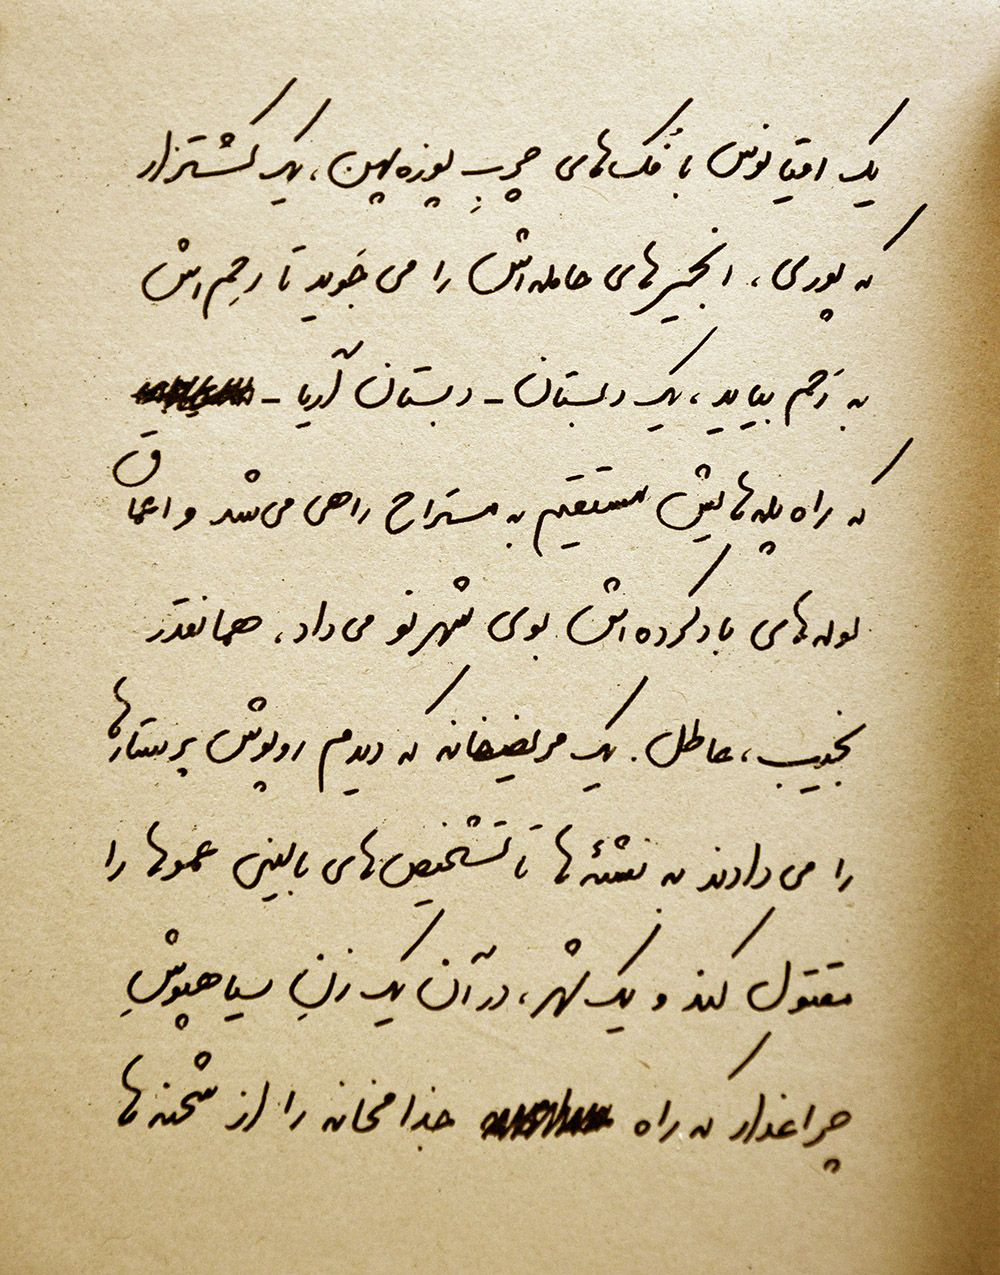 یک اقیانوس با فُک‌های چربِ پوزه پهن، یک کشتزار
که پوری، انجیرهای حامله‌اش را می جَوید تا رحِم‌اش
به رَحم بیاید، یک دبستان - دبستان آریا -
که راه پله‌هایش مستقیم به مستراح راهی می‌شد و اعماق
لوله‌های بادکرده‌اش بوی شهرنو می‌داد، همانقدر
نجیب، عاطل. یک مریضخانه که دیدم روپوش پرستارها
را می‌دادند به نشئه‌ها تا تشخیص‌های بالینی عموها را
مقتول کند و یک شهر، در آن یک زنِ سیاهپوشِ
چراغدار که راه جذامخانه را از شحنه‌ها